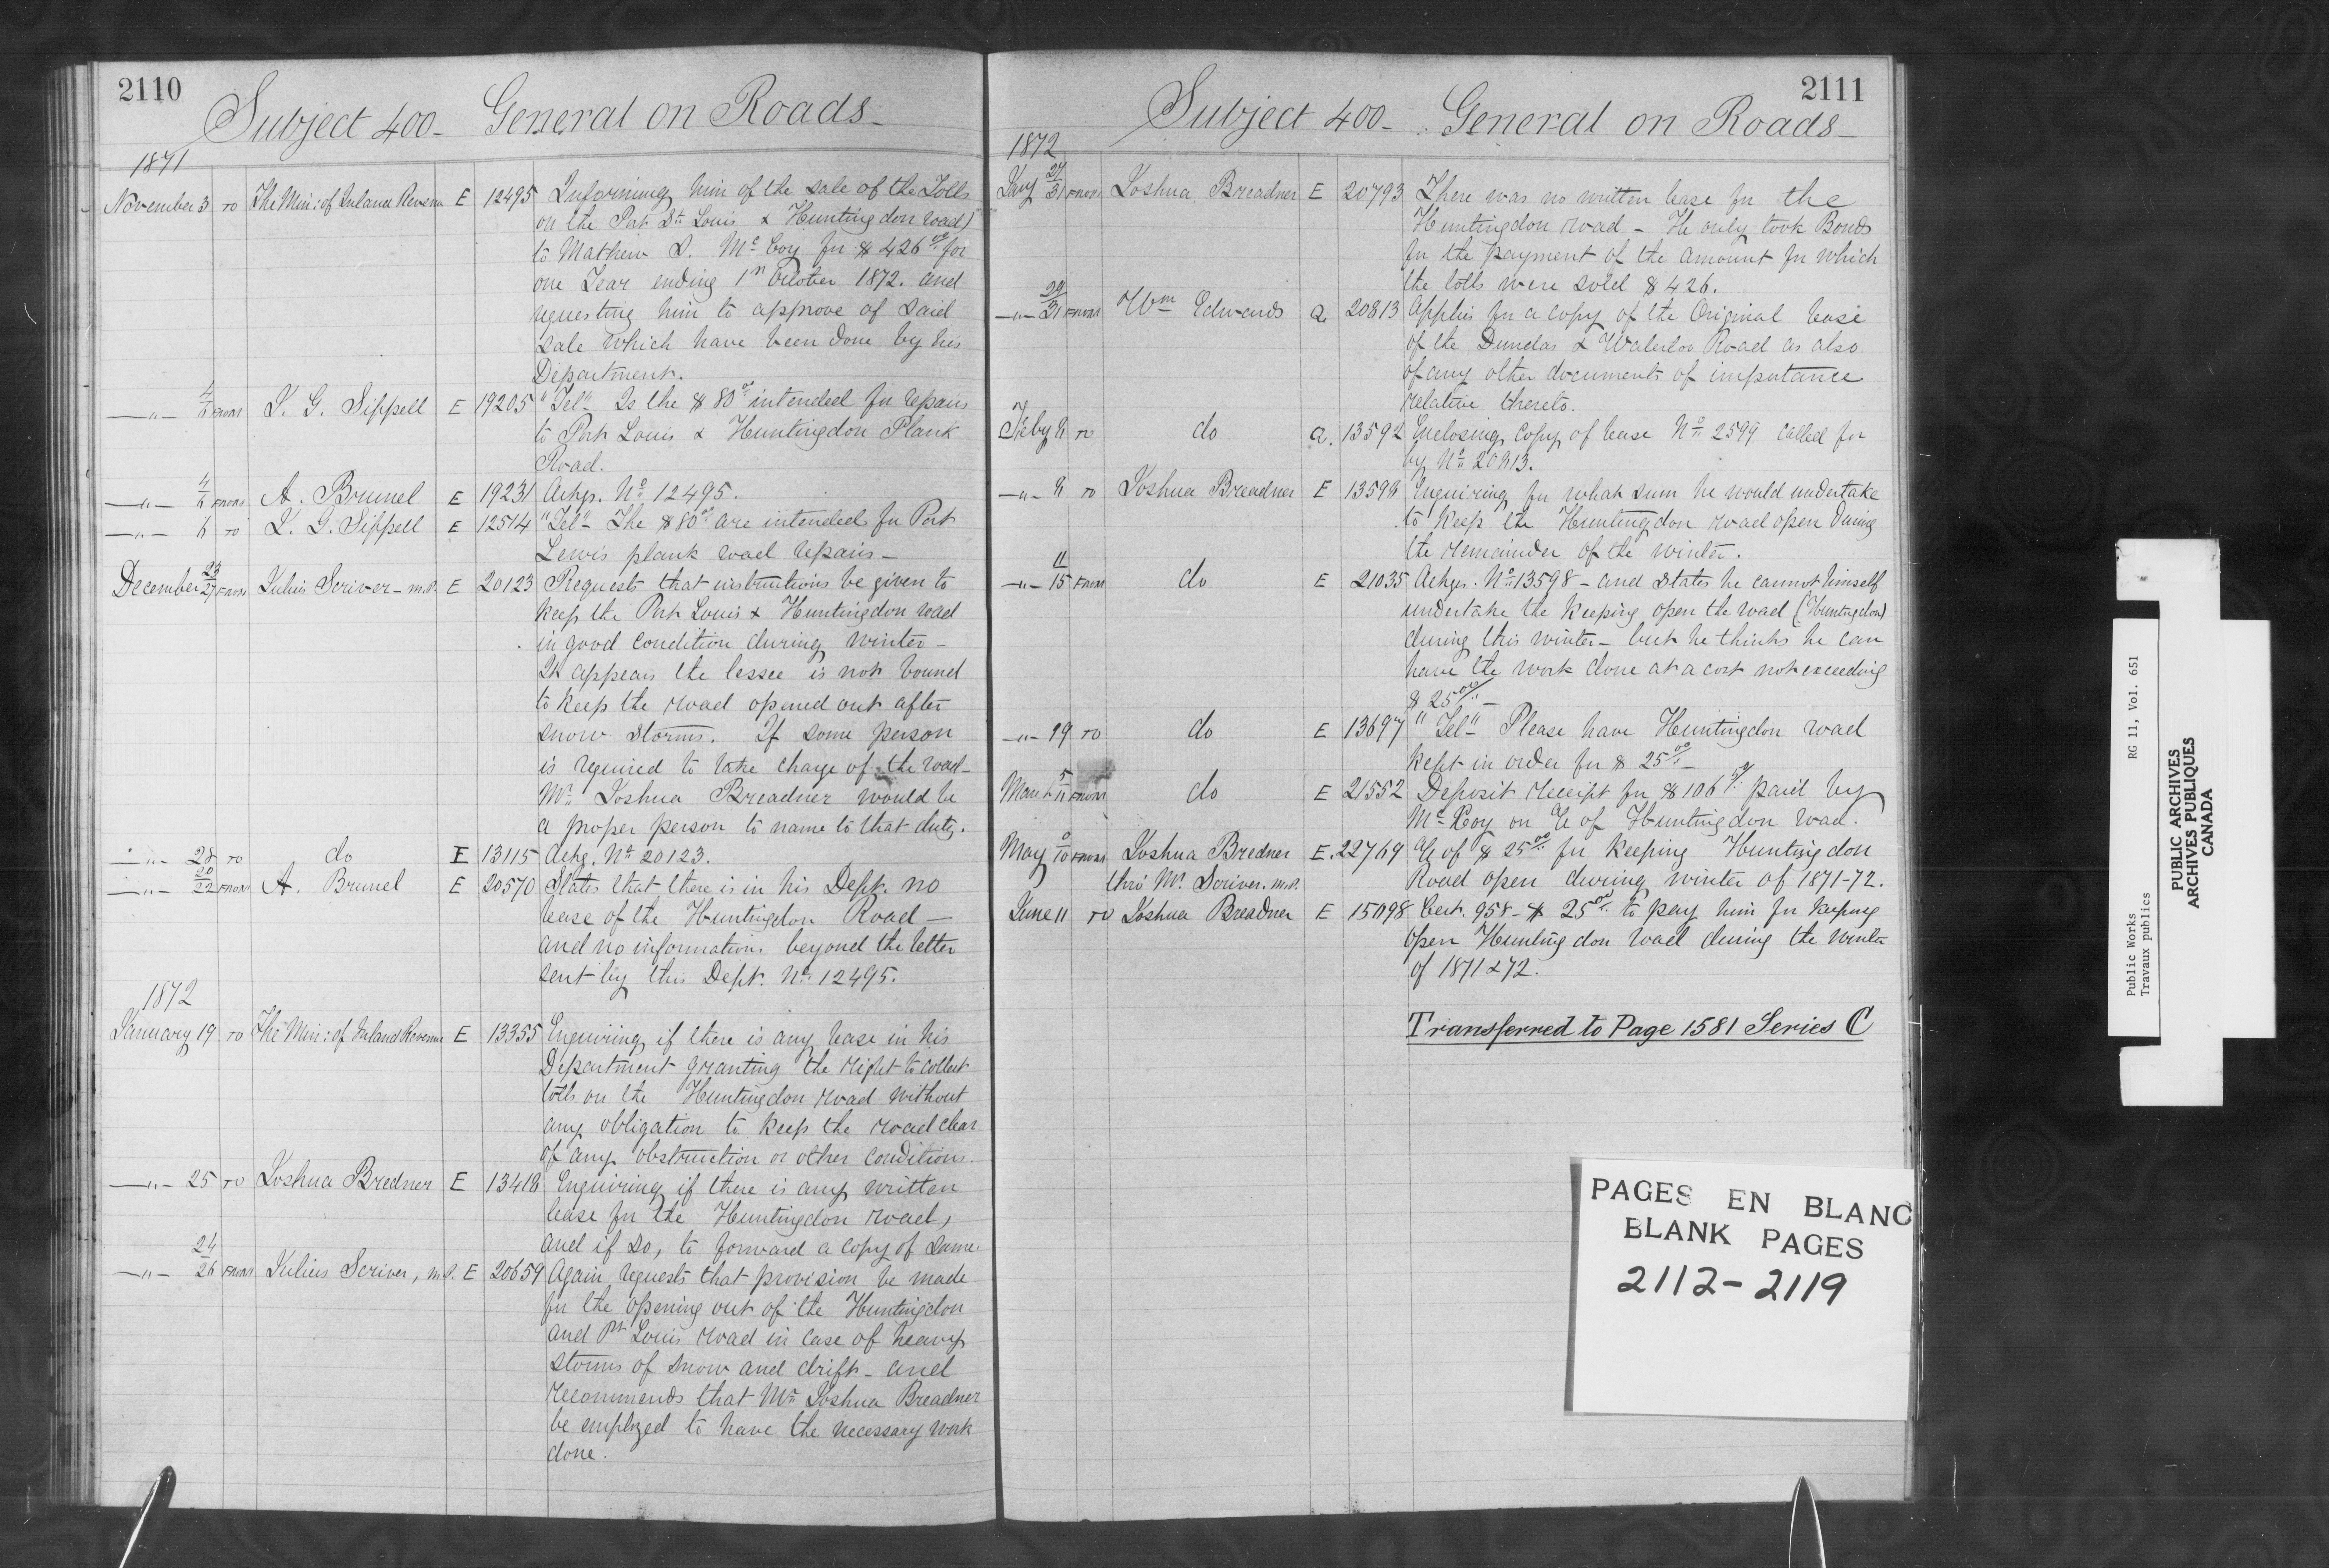 2110
Subject 400 - General on Roads -
1871
November 3 TO The Min: of Inland Revenue E 12495 Informing him of the sale of the Tolls
on the Port St. Louis & Huntingdon road
to Mathew S. McCoy for $426.00 for
one Year ending 1st October 1872. and
requesting him to approve of said
sale which have been done by his
Department.
—"— 4/6 FROM L. G. Sippell E 19205 "Tel" Is the $80.00 intended for repairs
to Port Louis & Huntingdon Plank
Road.
—"— 4/6 FROM A. Brunel E 19231 Ackgs. No. 12495.
—"— 6 TO L. G. Sippell E 12514 "Tel" The $80.00 are intended for Port
Lewis plank road repairs -
December 23/27 FROM Julius Scriver - M.P. E 20123 Requests that instructions be given to
keep the Port Louis & Huntingdon road
in good condition during winter -
It appears the lessee is not bound
to keep the road opened out after
snow storms. If some person
is required to take charge of the road -
Mr. Joshua Breadner would be
a proper person to name to that duty.
—"— 28 TO do E 13115 Ackg. No. 20123.
—"— 20/22 FROM A. Brunel E 20570 States that there is in his Dept. no
lease of the Huntingdon Road -
and no information beyond the letter
sent by this Dept. No. 12495.
1872
January 19 TO The Min: of Inland Revenue E 13355 Enquiring if there is any lease in his
Department granting the right to collect
tolls on the Huntingdon road without
any obligation to keep the road clear
of any obstruction or other conditions.
—"— 25 TO Joshua Bredner E 13418 Enquiring if there is any written
lease for the Huntingdon road,
and if so, to forward a copy of same.
—"— 24/26 FROM Julius Scriver, M.P. E 20659 Again requests that provision be made
for the opening out of the Huntingdon
and Pt. Louis road in case of heavy
storms of snow and drift - and
recommends that Mr. Joshua Breadner
be employed to have the necessary work
done.
2111
Subject 400 - General on Roads -
1872
Jany 27/31 FROM Joshua Breadner E 20793 There was no written lease for the
Huntingdon road - He only took Bonds
for the payment of the amount for which
the tolls were sold $426.
—"— 29/31 FROM Wm Edwards a 20813 Applies for a copy of the Original lease
of the Dundas & Waterloo Road as also
of any other documents of importance
relative thereto.
Feby 8 TO do a. 13592 Enclosing copy of lease No. 2599 called for
by No. 20813.
—"— 8 TO Joshua Breadner E 13598 Enquiring for what sum he would undertake
to keep the Huntingdon road open during
the remainder of the winter.
—"— 11/15 FROM do E 21035 Ackgs. No. 13598 - and states he cannot himself
undertake the keeping open the road (Huntingdon)
during this winter - but he thinks he can
have the work done at a cost not exceeding
$25.00 -
—"— 19 TO do E 13697 "Tel" Please have Huntingdon road
kept in order for $25.00 -
March 5/11 FROM do E 21552 Deposit receipt for $106.50 paid by
McCoy on a/c of Huntingdon road.
May /10 FROM Joshua Bredner E. 22769 a/c of $25.00 for keeping Huntingdon
thro' Mr. Scriver. M.P. Road open during winter of 1871-72.
June 11 TO Joshua Breadner E 15098 Cert. 958 - $25.00 to pay him for keeping
open Huntingdon road during the winter
of 1871 & 72.
Transferred to Page 1581 Series C
PAGES EN BLANC
BLANK PAGES
2112-2119
Public Works RG 11, Vol. 651
Travaux publics
PUBLIC ARCHIVES
ARCHIVES PUBLIQUES
CANADA